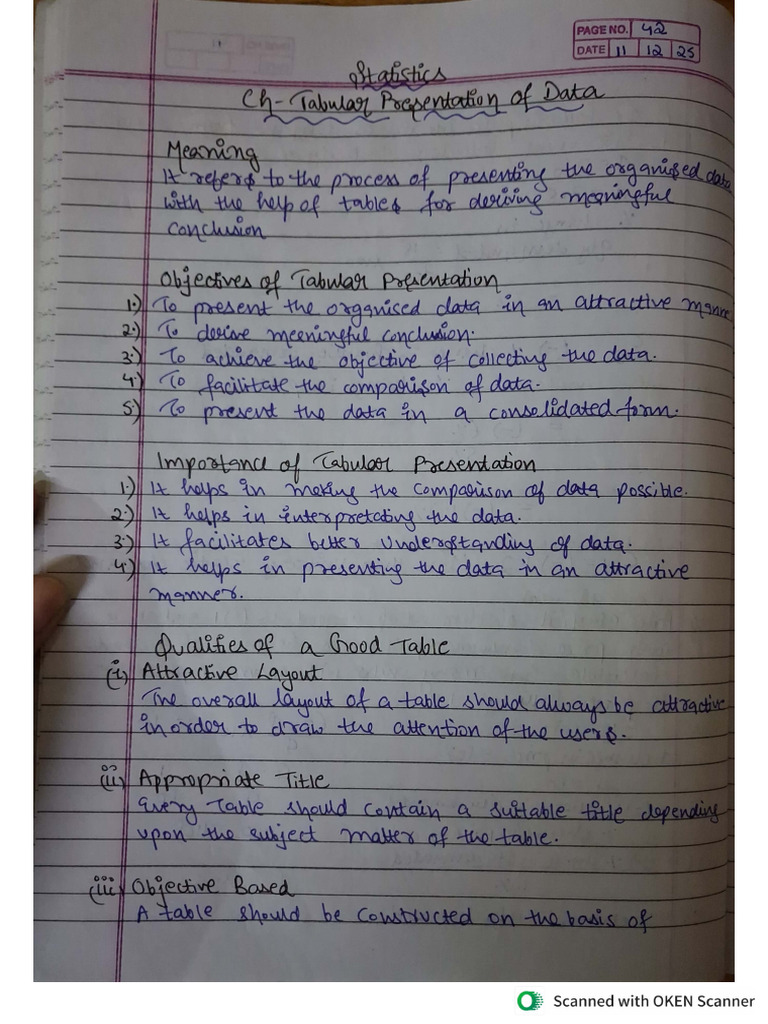 PAGE NO. 42
DATE 11 12 25
Statistics
Ch- Tabular Presentation of Data
Meaning
It refers to the process of presenting the organised data
with the help of tables for deriving meaningful
conclusion
Objectives of Tabular Presentation
1.) To present the organised data in an attractive manne
2.) To derive meeningful conclusion.
3.) To achieve the objective of collecting the data.
4.) To facilitate the comparison of data.
5.) To present the data in a consolidated form.
Importance of Tabular Presentation
1.) It helps in making the comparison of data possible.
2.) It helps in interpretating the data.
3.) It facilitates better understanding of data.
4.) It helps in presenting the data in an attractive
manner.
Qualities of a Good Table
(i) Attractive Layout
The overall layout of a table should always be attractive
in order to draw the attention of the users.
(ii) Appropriate Title
Every Table should contain a suitable title depending
upon the subject matter of the table.
(iii) Objective Based
A table should be constructed on the basis of
Scanned with OKEN Scanner